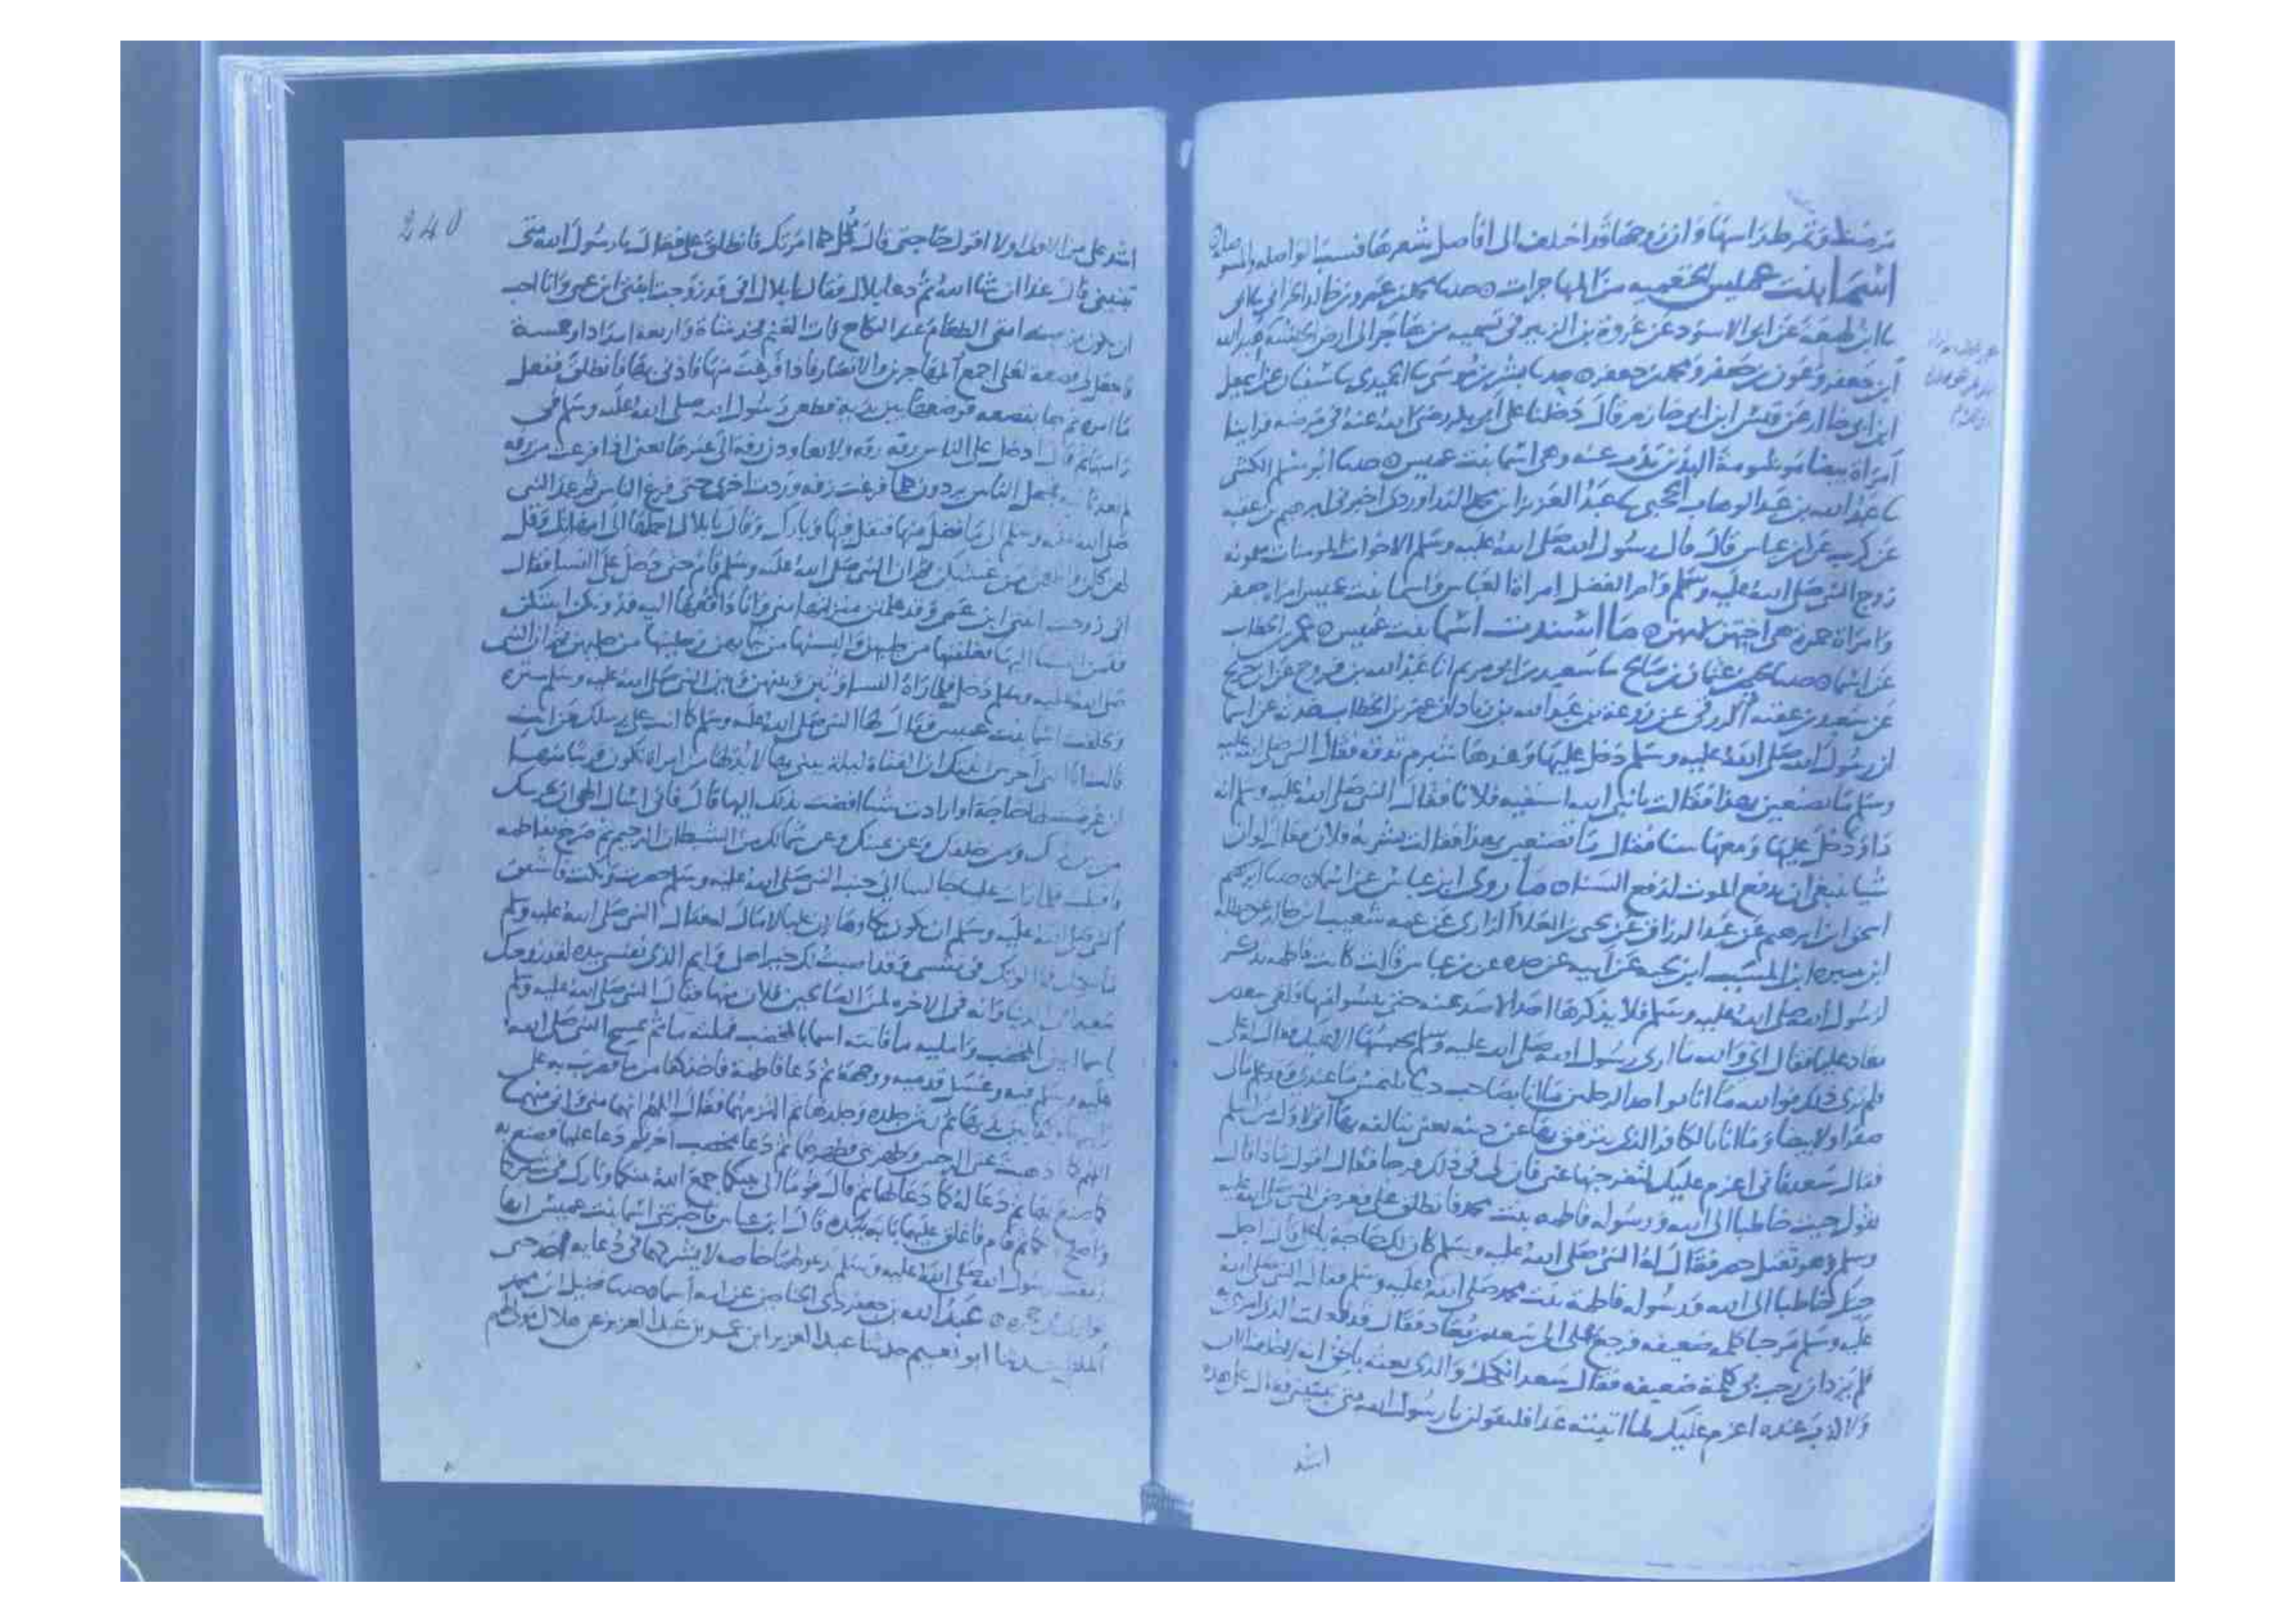 تمرط راسها وان زوجها قد اختلف الى افاصل شعرها فسب الواصله والموصوله
اسما بنت عميس الخثعميه من المهاجرات حدثنا محمد بن عمرو بن خالد الحراني نا ابى
نا ابن لهيعة عن ابى الاسود عن عروة بن الزبير فى تسميه من هاجر الى ارض الحبشه عبد الله
ابن جعفر وعون بن جعفر ومحمد بن جعفر حدثنا بشر بن موسى نا الحميدى نا سفيان عن اسمعيل
ابن ابى خالد عن قيس ابن ابى حازم قال دخلنا على ابى بكر رضى الله عنه فى مرضه فراينا
امراة بيضا موشومة اليدين تذب عنه وهى اسما بنت عميس حدثنا ابو مسلم الكشى
نا عبد الله بن عبد الوهاب الحجبى نا عبد العزيز ابن محمد الدراوردى اخبرنى ابرهيم بن عقبه
عن كريب عن ابن عباس قال قال رسول الله صلى الله عليه وسلم الاخوات المومنات ميمونه
زوج النبى صلى الله عليه وسلم وام الفضل امراة العباس واسما بنت عميس امراة جعفر
وامراة حمزة هى اختهن لامهن ما اسندت اسما بنت عميس عمر بن الخطاب
عن اسما حدثنا يحيى بن عثمان بن صالح نا سعيد بن ابى مريم انا عبد الله بن فروخ عن ابن جريج
عن سعيد بن عقبه الزرقى عن زرعة بن عبد الله بن زياد ان عمر بن الخطاب حدثه عن اسما
ان رسول الله صلى الله عليه وسلم دخل عليها وعندها شبرم تدقه فقال النبى صلى الله عليه
وسلم ما تصنعين بهذا فقالت يا نبى الله اسقيه فلانا فقال النبى صلى الله عليه وسلم انه
داو ودخل عليها ومعها سنا فقال ما تصنعين بهذا فقالت يشربه فلان فقال لو ان
شيا ينبغى ان يدفع الموت لدفع السنا ما روى ابن عباس عن اسما حدثنا
اسحق ابن ابرهيم عن عبد الرزاق عن يحيى بن العلا الرازى عن عمه شعيب ابن خالد عن حنظله
ابن سبرة ابن المسيب ابن نجبه عن ابيه عن جده عن بن عباس قال كانت فاطمه تذكر
لرسول الله صلى الله عليه وسلم فلا يذكرها احد الا صد عنه حتى يئسوا منها فلقى سعد
بن معاذ عليا فقال انى والله ما ارى رسول الله صلى الله عليه وسلم يحبسها الا عليك فقال له على
فلم ترى ذلك فوالله ما انا بواحد الرجلين ما انا بصاحب دنيا يلتمس ما عندى وقد علم مالى
صفرا ولا بيضا وما انا بالكافر الذى يترفق بها عن دينه يعنى يتالفه بها انى لاول من اسلم
فقال سعد فانى اعزم عليك لتفرجنها عنى فان لى فى ذلك فرجا فقال اقول ماذا قال
تقول جيت خاطبا الى الله ورسوله فاطمه بنت محمد فانطلق على فعرض للنبى صلى الله عليه
وسلم وهو ثقيل حصر فقال له النبى صلى الله عليه وسلم كان لك حاجة يا على قال اجل
جيتك خاطبا الى الله ورسوله فاطمة بنت محمد صلى الله عليه وسلم فقال له النبى صلى الله
عليه وسلم مرحبا كلمه ضعيفه فرجع على الى سعد بن معاذ فقال قد فعلت الذى امرتنى به
فلم يزد ان رحب بى كلمة ضعيفه فقال سعد انكحك والذى بعثه بالحق انه لا خلف الان
ولا كذب عنده اعزم عليك لما اتيته غدا فلتقولن يا رسول الله متى تبنينى فقال على هذه
اشد
240
اشد على من الاولى اولا اقول حاجتى قال قل كما امرتك فانطلق على فقال يا رسول الله متى
تبنينى قال غدا ان شا الله ثم دعا بلالا فقال يا بلال انى قد زوجت ابنتى ابن عمى وانا احب
ان يكون من سنه امتى الطعام عند النكاح فات الغنم فخذ شاة واربعه امداد او خمسة
فاجعل لى قصعه لعلى اجمع المهاجرين والانصار فاذا فرغت منها فاذنى بها فانطلق ففعل
ما امره ثم جا بقصعه فوضعها بين يديه فطعن رسول الله صلى الله عليه وسلم فى
راسها ثم قال ادخل على الناس زفه زفه ولا تغادرن زفه الى غيرها يعنى اذا فرغت زفه
لم تعد ثانيه فجعل الناس يردون كلما فرغت زفه وردت اخرى حتى فرغ الناس ثم عمد النبى
صلى الله عليه وسلم الى ما فضل منها فتفل فيها وبارك وقال يا بلال احملها الى امهاتك وقل
لهن كلن واطعمن من غشيكن ثم ان النبى صلى الله عليه وسلم قام حتى دخل على النسا فقال
انى زوجت ابنتى ابن عمى وقد علمتن منزلتها منى وانا دافعها اليه فدونكن ابنتكن
فقمن النسا اليها فغلفنها من طيبهن والبسنها من ثيابهن وحلينها من حليهن ثم ان النبى
صلى الله عليه وسلم دخل فلما راه النسا وثبن وبينهن وبين النبى صلى الله عليه وسلم ستره
وتخلفت اسما بنت عميس فقال لها النبى صلى الله عليه وسلم كما انت على رسلك من انت
قالت انا التى احرس ابنتك ان الفتاة ليلة يبنى بها لا بد لها من امراة تكون قريبا منها
ان عرضت لها حاجة او ارادت شيا افضت بذلك اليها قال فانى اسال الهى ان يحرسك
من بين يديك ومن خلفك وعن يمينك وعن شمالك من الشيطان الرجيم ثم صرخ بفاطمه
فاقبلت فلما رات عليا جالسا الى جنب النبى صلى الله عليه وسلم حصرت وبكت فاشفق
النبى صلى الله عليه وسلم ان يكون بكاوها ان عليا لا مال له فقال النبى صلى الله عليه وسلم
ما يبكيك فما الوتك فى نفسى وقد اصبت لك خير اهلى وايم الذى نفسى بيده لقد زوجتك
سعيدا فى الدنيا وانه فى الاخره لمن الصالحين فلان منها فقال النبى صلى الله عليه وسلم
يا اسما ايتينى بالمخضب واملييه ما فاتت اسما بالمخضب فملته ما ثم مج النبى صلى الله
عليه وسلم فيه وغسل قدميه ووجهه ثم دعا فاطمة فاخذ كفا من ما فضرب به على
راسها وكفا بين ثدييها ثم رش جلده وجلدها ثم التزمهما فقال اللهم انهما منى وانى منهما
اللهم كما اذهبت عنى الرجس وطهرتنى فطهرهما ثم دعا بمخضب اخر ثم دعا عليا فصنع به
كما صنع بها ثم دعا له كما دعا لها ثم قال قوما الى بيتكما جمع الله بينكما وبارك فى سركما
واصلح بالكما ثم قام فاغلق عليهما بابه بيده قال ابن عباس فاخبرتنى اسما بنت عميس انها
رمقت رسول الله صلى الله عليه وسلم يدعو لهما خاصه لا يشركهما فى دعايه احد حتى
توارى فى حجره عبد الله بن جعفر ذى الجناحين عن امه اسما حدثنا فضيل ابن محمد
الملطى حدثنا ابو نعيم حدثنا عبد العزيز ابن عمر بن عبد العزيز عن هلال مولاهم